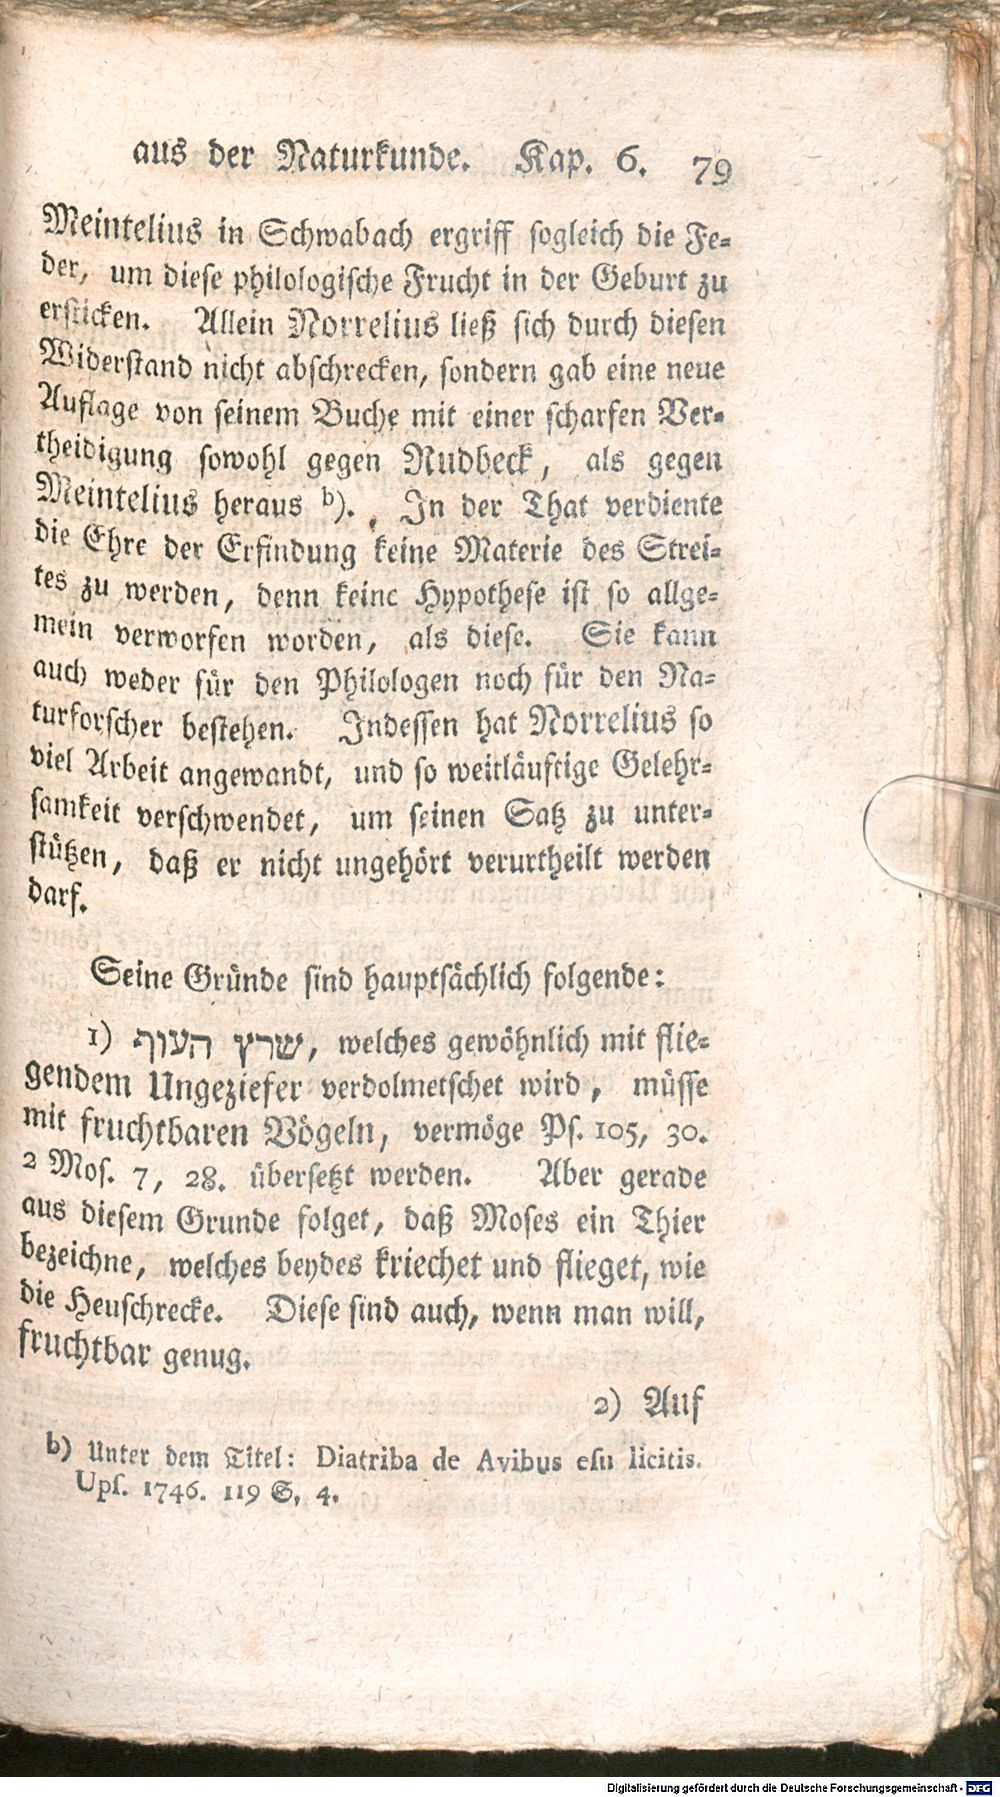 aus der Naturkunde. Kap. 6. 79
Meintelius in Schwabach ergriff sogleich die Fe-
der, um diese philologische Frucht in der Geburt zu
ersticken. Allein Norrelius ließ sich durch diesen
Widerstand nicht abschrecken, sondern gab eine neue
Auflage von seinem Buche mit einer scharfen Ver-
theidigung sowohl gegen Rudbeck, als gegen
Meintelius heraus b). In der That verdiente
die Ehre der Erfindung keine Materie des Strei-
tes zu werden, denn keine Hypothese ist so allge-
mein verworfen worden, als diese. Sie kann
auch weder für den Philologen noch für den Na-
turforscher bestehen. Indessen hat Norrelius so
viel Arbeit angewandt, und so weitläuftige Gelehr-
samkeit verschwendet, um seinen Satz zu unter-
stützen, daß er nicht ungehört verurtheilt werden
darf.
Seine Gründe sind hauptsächlich folgende:
1) שרץ העוף, welches gewöhnlich mit flie-
gendem Ungeziefer verdolmetschet wird, müsse
mit fruchtbaren Vögeln, vermöge Ps. 105, 30.
2 Mos. 7, 28. übersetzt werden. Aber gerade
aus diesem Grunde folget, daß Moses ein Thier
bezeichne, welches beydes kriechet und flieget, wie
die Heuschrecke. Diese sind auch, wenn man will,
fruchtbar genug.
2) Auf
b) Unter dem Titel: Diatriba de Avibus esu licitis.
Ups. 1746. 119 S. 4.
Digitalisierung gefördert durch die Deutsche Forschungsgemeinschaft - DFG